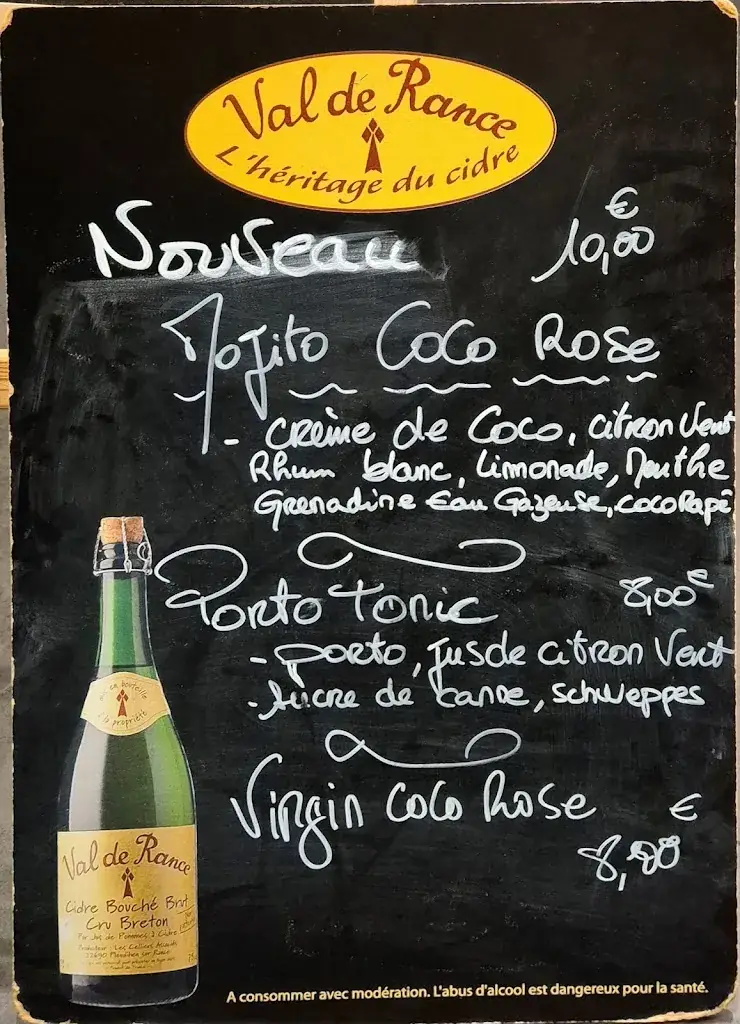 Val de Rance
L'héritage du cidre
Nouveau 10,00 €
Mojito Coco Rose
- crème de Coco, citron Vert
Rhum blanc, Limonade, Menthe
Grenadine Eau Gazeuse, coco Rapé
Porto Tonic 8,00€
- porto, jus de citron Vert
- sucre de canne, schweppes
Virgin Coco Rose €
8,00
mis en bouteille
à la propriété
Val de Rance
Cidre Bouché Brut
Cru Breton
Pur Jus de Pommes à Cidre
Producteur : Les Celliers Associés
22690 Pleudihen sur Rance
A consommer avec modération. L'abus d'alcool est dangereux pour la santé.